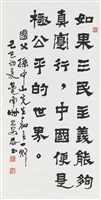 如果三民主義能夠
實行中國便是
極公平的世界。
國父孫中山先生嘉言一則